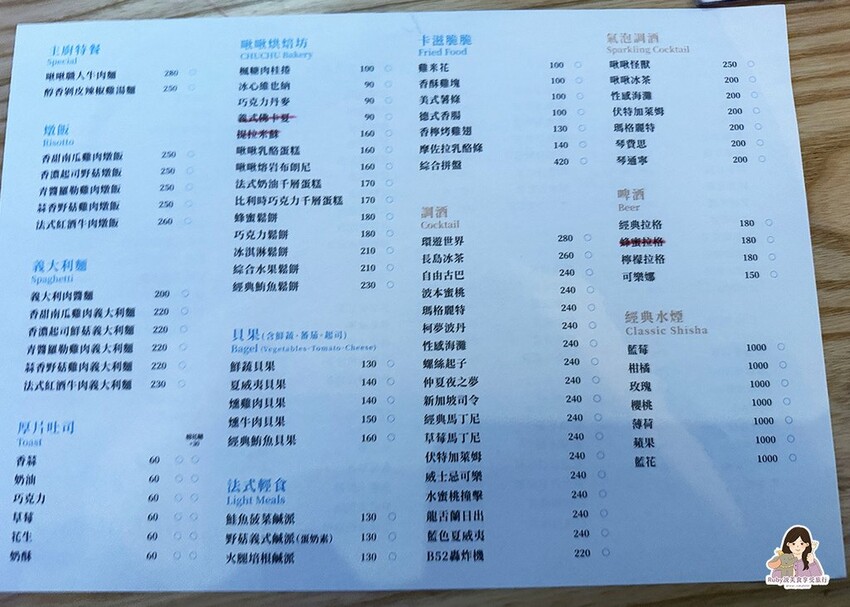 主廚特餐
Special
啾啾職人牛肉麵 280
醇香剝皮辣椒雞湯麵 250
燉飯
Risotto
香甜南瓜雞肉燉飯 250
香濃起司野菇燉飯 250
青醬羅勒雞肉燉飯 250
蒜香野菇雞肉燉飯 250
法式紅酒牛肉燉飯 260
義大利麵
Spaghetti
義大利肉醬麵 200
香甜南瓜雞肉義大利麵 220
香濃起司鮮菇義大利麵 220
青醬羅勒雞肉義大利麵 220
蒜香野菇雞肉義大利麵 220
法式紅酒牛肉義大利麵 230
厚片吐司
Toast
香蒜 60
奶油 60
巧克力 60
草莓 60
花生 60
奶酥 60
啾啾烘焙坊
CHUCHU Bakery
楓糖肉桂捲 100
冰心維也納 90
巧克力丹麥 90
義式佛卡夏 90
提拉米蘇 160
啾啾乳酪蛋糕 160
啾啾熔岩布朗尼 160
法式奶油千層蛋糕 170
比利時巧克力千層蛋糕 170
蜂蜜鬆餅 180
巧克力鬆餅 180
冰淇淋鬆餅 210
綜合水果鬆餅 210
經典鮪魚鬆餅 230
貝果(含鮮蔬·蕃茄·起司)
Bagel (Vegetables·Tomato·Cheese)
鮮蔬貝果 130
夏威夷貝果 140
燻雞肉貝果 140
燻牛肉貝果 150
經典鮪魚貝果 160
法式輕食
Light Meals
鮭魚菠菜鹹派 130
野菇義式鹹派(蛋奶素) 130
火腿培根鹹派 130
卡滋脆脆
Fried Food
雞米花 100
香酥雞塊 100
美式薯條 100
德式香腸 100
香檸烤雞翅 130
摩佐拉乳酪條 140
綜合拼盤 420
調酒
Cocktail
環遊世界 280
長島冰茶 260
自由古巴 240
波本蜜桃 240
瑪格麗特 240
柯夢波丹 240
性感海灘 240
螺絲起子 240
仲夏夜之夢 240
新加坡司令 240
經典馬丁尼 240
草莓馬丁尼 240
伏特加萊姆 240
威士忌可樂 240
水蜜桃撞擊 240
龍舌蘭日出 240
藍色夏威夷 240
B52轟炸機 220
氣泡調酒
Sparkling Cocktail
啾啾怪獸 250
啾啾冰茶 200
性感海灘 200
伏特加萊姆 200
瑪格麗特 200
琴費思 200
琴通寧 200
啤酒
Beer
經典拉格 180
蜂蜜拉格 180
檸檬拉格 180
可樂娜 150
經典水煙
Classic Shisha
藍莓 1000
柑橘 1000
玫瑰 1000
櫻桃 1000
薄荷 1000
蘋果 1000
藍花 1000
Ruby說美食享受旅行